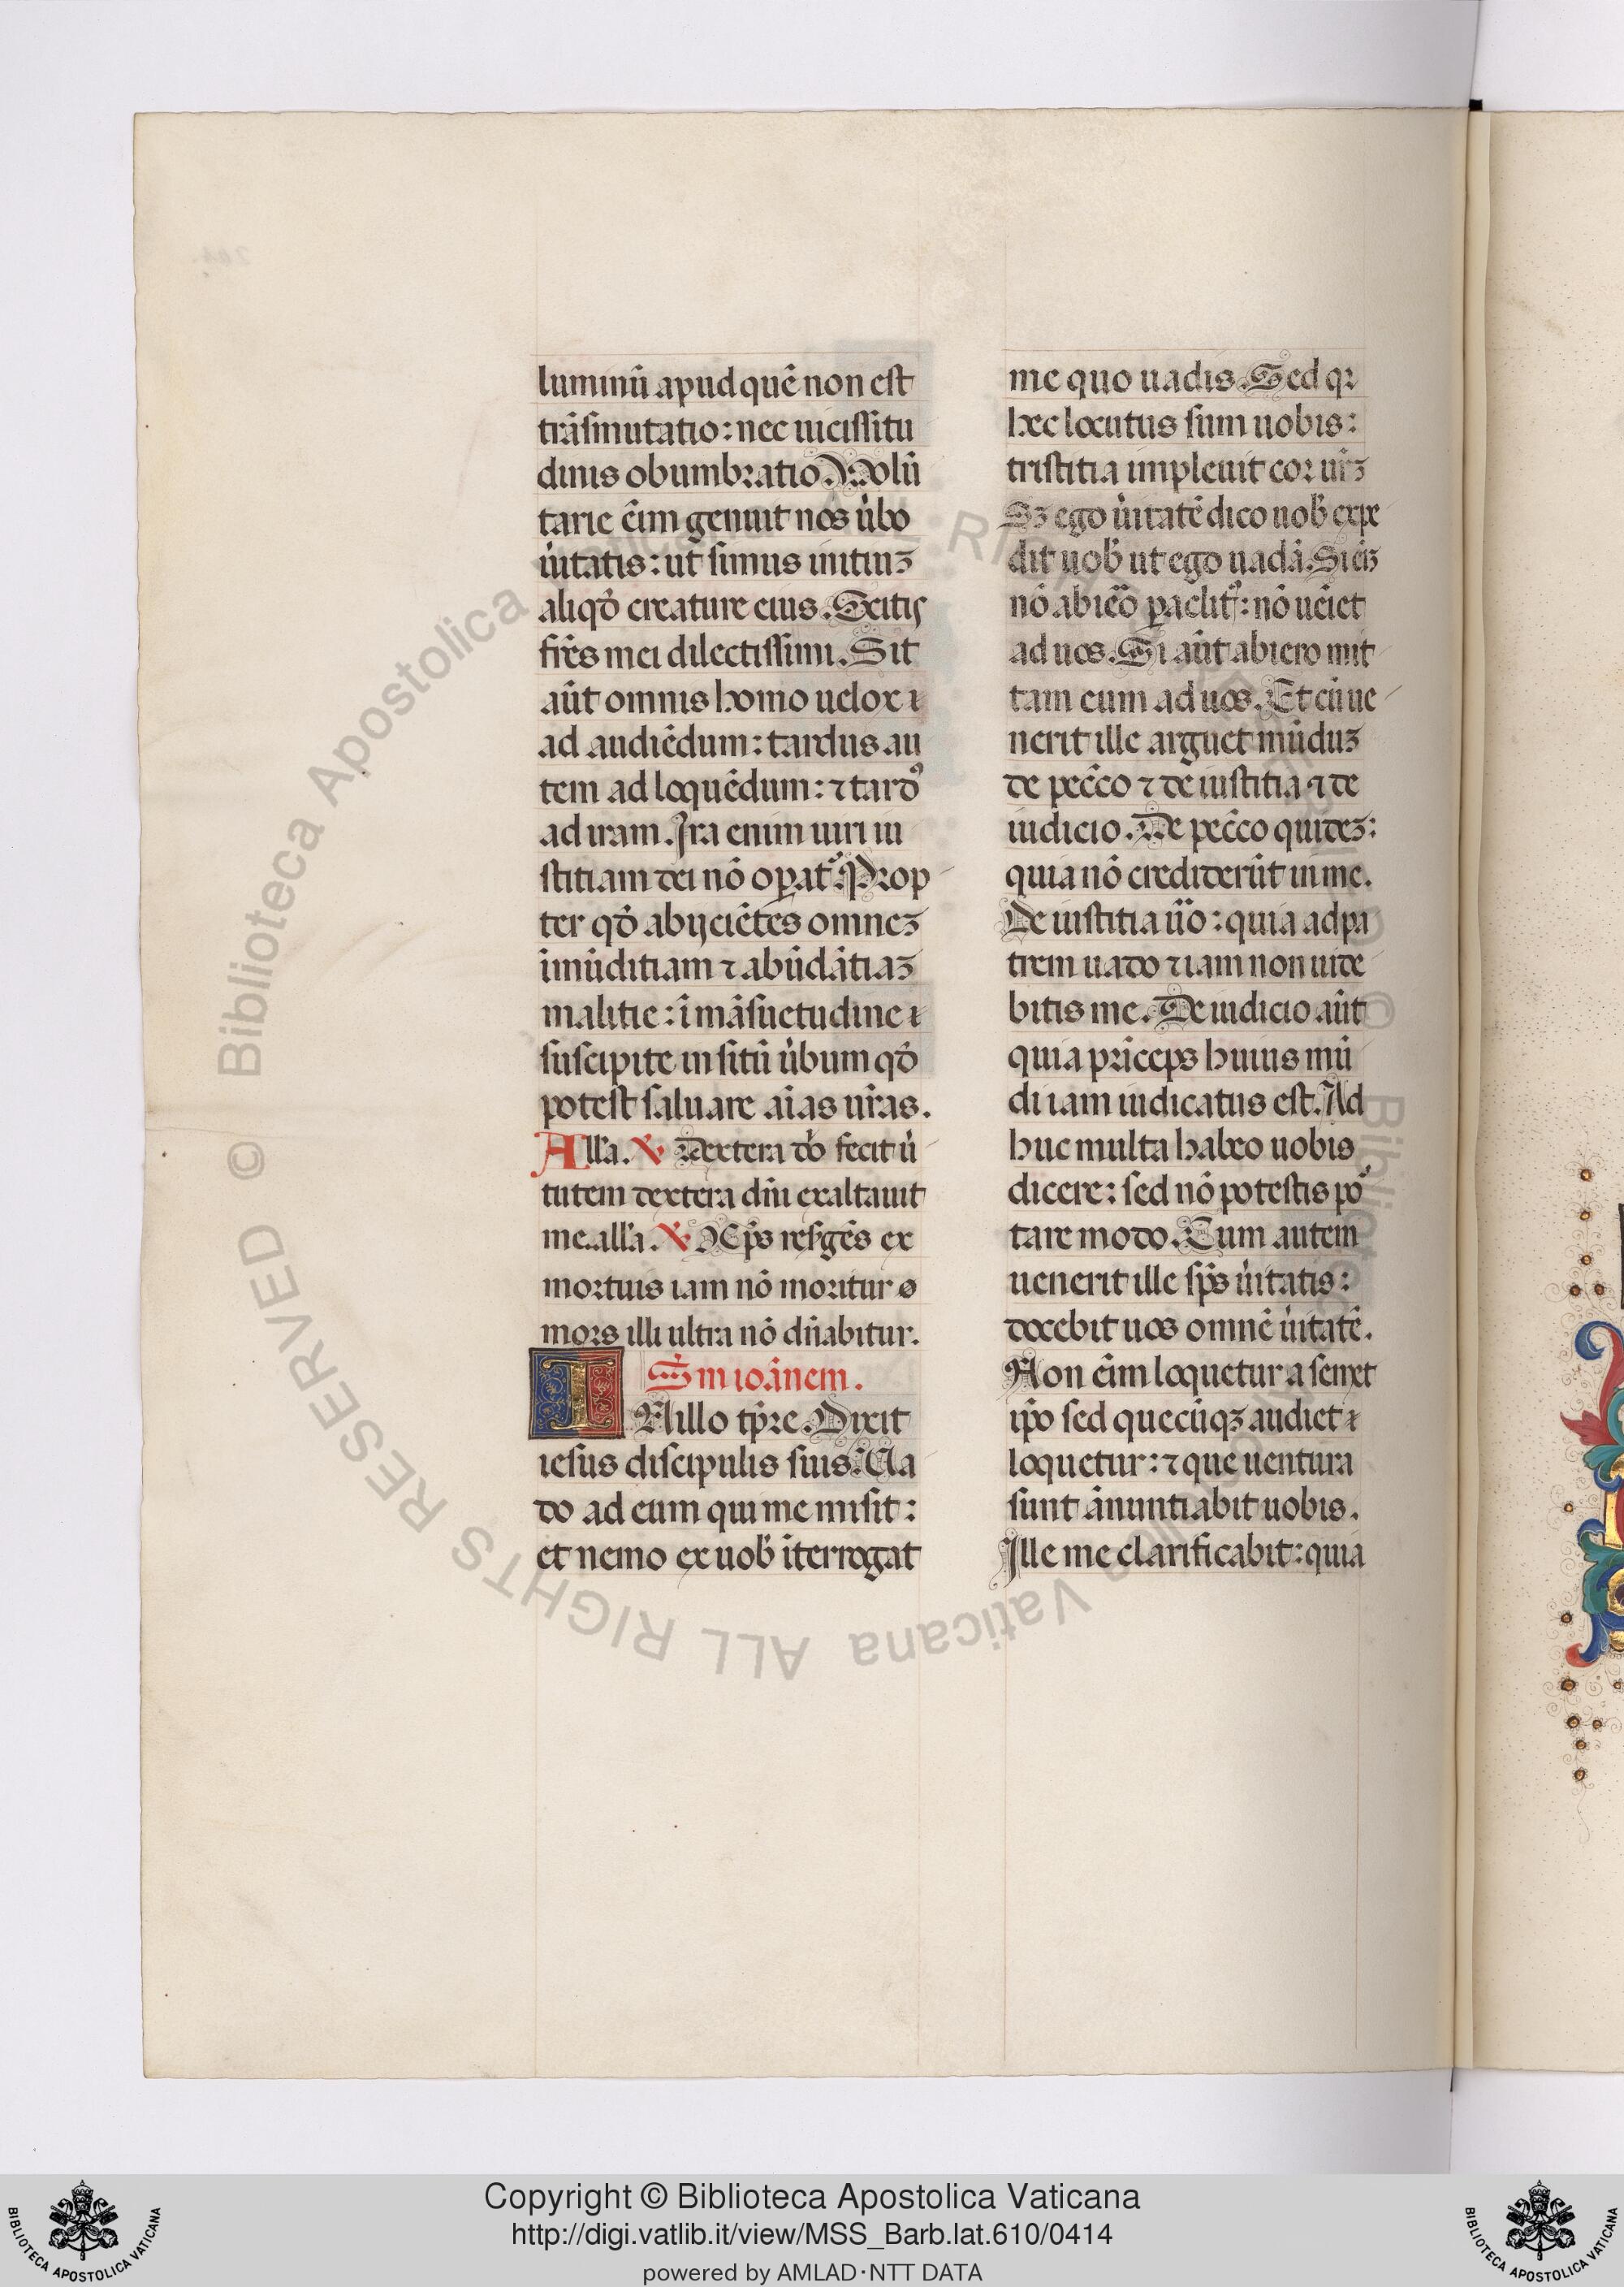 luminū apud quē non est
trāsmutatio: nec uicissitu
dinis obumbratio. Uolū
tarie ēim genuit nos u̇bo
u̇itatis: ut simus initiuʒ
aliqd̄ creature eius. Scitis
fr̄es mei dilectissimi. Sit
aūt omnis homo uelox
ad audiēdum: tardus au
tem ad loquēdum: ⁊ tardꝰ
ad iram. Ira enim uiri iu
stitiam dei nō oꝑat᷑. Prop
ter qd̄ abijciētes omneʒ
īmūditiam ⁊ abūdātiaʒ
malitie: ī māsuetudine
suscipite insitū u̇bum qd̄
potest saluare aīas ur̄as.
Alla. ℣ Dextera dn̄i fecit u̇
tutem dextera dn̄i exaltauit
me. alla. ℣ Xp̄s resꝰgēs ex
mortuis iam nō moritur
mors illi ultra nō dn̄abitur.
Sm ioānem.
IN illo tp̄re. Dixit
iesus discipulis suis. Ua
do ad eum qui me misit:
et nemo ex uob̄ īterrogat
me quo uadis. Sed qꝛ
hec locutus sum uobis:
tristitia impleuit cor ur̄ʒ
Sʒ ego u̇itatē dico uob̄ expe
dit uob̄ ut ego uadā. Si eīʒ
nō abiēo ꝑaclitꝰ: nō uēiet
ad uos. Si aūt abiero mit
tam eum ad uos. Et cū ue
nerit ille arguet mūduʒ
de pecc̄o ⁊ de iustitia ⁊ de
iudicio. De pecc̄o quideʒ:
quia nō crediderūt in me.
De iustitia u̇o: quia ad pa
trem uado ⁊ iam non uide
bitis me. De iudicio aūt
quia prīceps huius mū
di iam iudicatus est. Ad
huc multa habeo uobis
dicere: sed nō potestis poꝛ
tare modo. Cum autem
uenerit ille sp̄s u̇itatis:
docebit uos omnē u̇itatē.
Non ēim loquetur a semet
ip̄o sed quecūqʒ audiet
loquetur: ⁊ que uentura
sunt ānuntiabit uobis.
Ille me clarificabit: quia
© Biblioteca Apostolica Vaticana ALL RIGHTS RESERVED
Copyright © Biblioteca Apostolica Vaticana
http://digi.vatlib.it/view/MSS_Barb.lat.610/0414
powered by AMLAD·NTT DATA
BIBLIOTECA APOSTOLICA VATICANA
BIBLIOTECA APOSTOLICA VATICANA